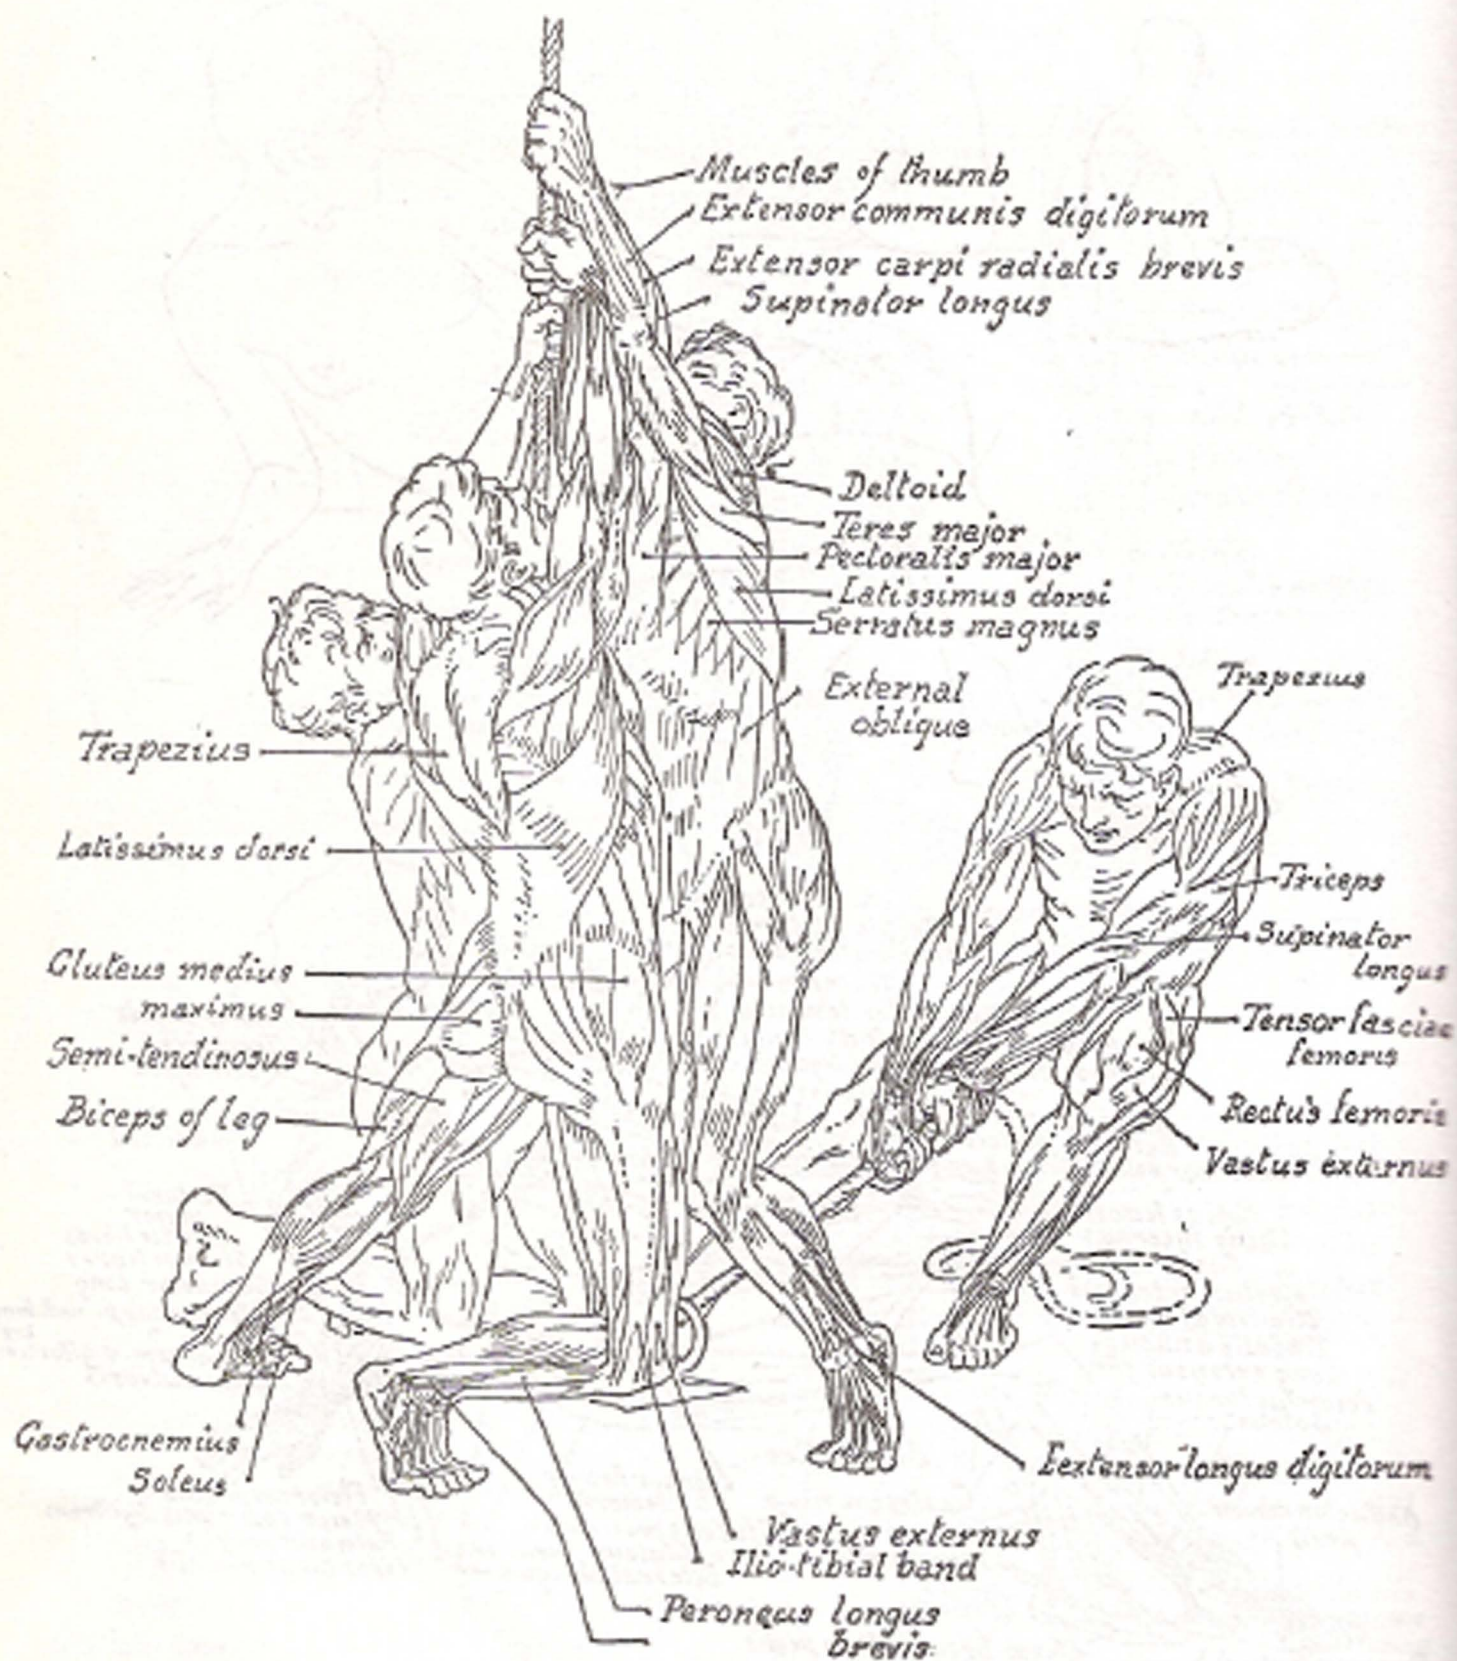 Muscles of thumb
Extensor communis digitorum
Extensor carpi radialis brevis
Supinator longus
Deltoid
Teres major
Pectoralis major
Latissimus dorsi
Serratus magnus
External
oblique
Trapezius
Latissimus dorsi
Gluteus medius
maximus
Semi-tendinosus
Biceps of leg
Gastrocnemius
Soleus
Trapezius
Triceps
Supinator
longus
Tensor fasciae
femoris
Rectus femoris
Vastus externus
Eextensor longus digitorum
Vastus externus
Ilio-tibial band
Peroneus longus
brevis